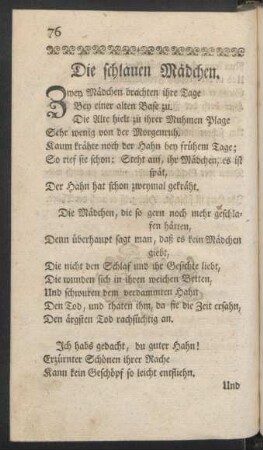 76
Die schlauen Mädchen.
Zwey Mädchen brachten ihre Tage
Bey einer alten Base zu.
Die Alte hielt zu ihrer Muhmen Plage
Sehr wenig von der Morgenruh.
Kaum krähte noch der Hahn bey frühem Tage;
So rief sie schon: Steht auf, ihr Mädchen, es ist
spät,
Der Hahn hat schon zweymal gekräht.
Die Mädchen, die so gern noch mehr geschla-
fen hätten,
Denn überhaupt sagt man, daß es kein Mädchen
giebt,
Die nicht den Schlaf und ihr Gesichte liebt,
Die wunden sich in ihren weichen Betten,
Und schwuren dem verdammten Hahn
Den Tod, und thaten ihm, da sie die Zeit ersahn,
Den ärgsten Tod rachsüchtig an.
Ich habs gedacht, du guter Hahn!
Erzürnter Schönen ihrer Rache
Kann kein Geschöpf so leicht entfliehn.
Und